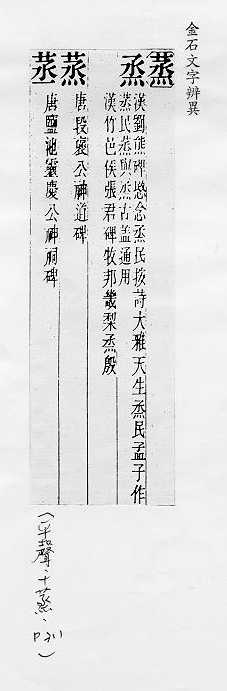 金石文字辨異
蒸
烝 漢劉熊碑愍念烝民按詩大雅天生烝民孟子作
蒸民蒸與烝古蓋通用
漢竹邑侯張君碑牧邦畿梨烝殷
蒸 唐段褒公神道碑
唐鹽池靈慶公神祠碑
(平聲、十蒸、
P 311)